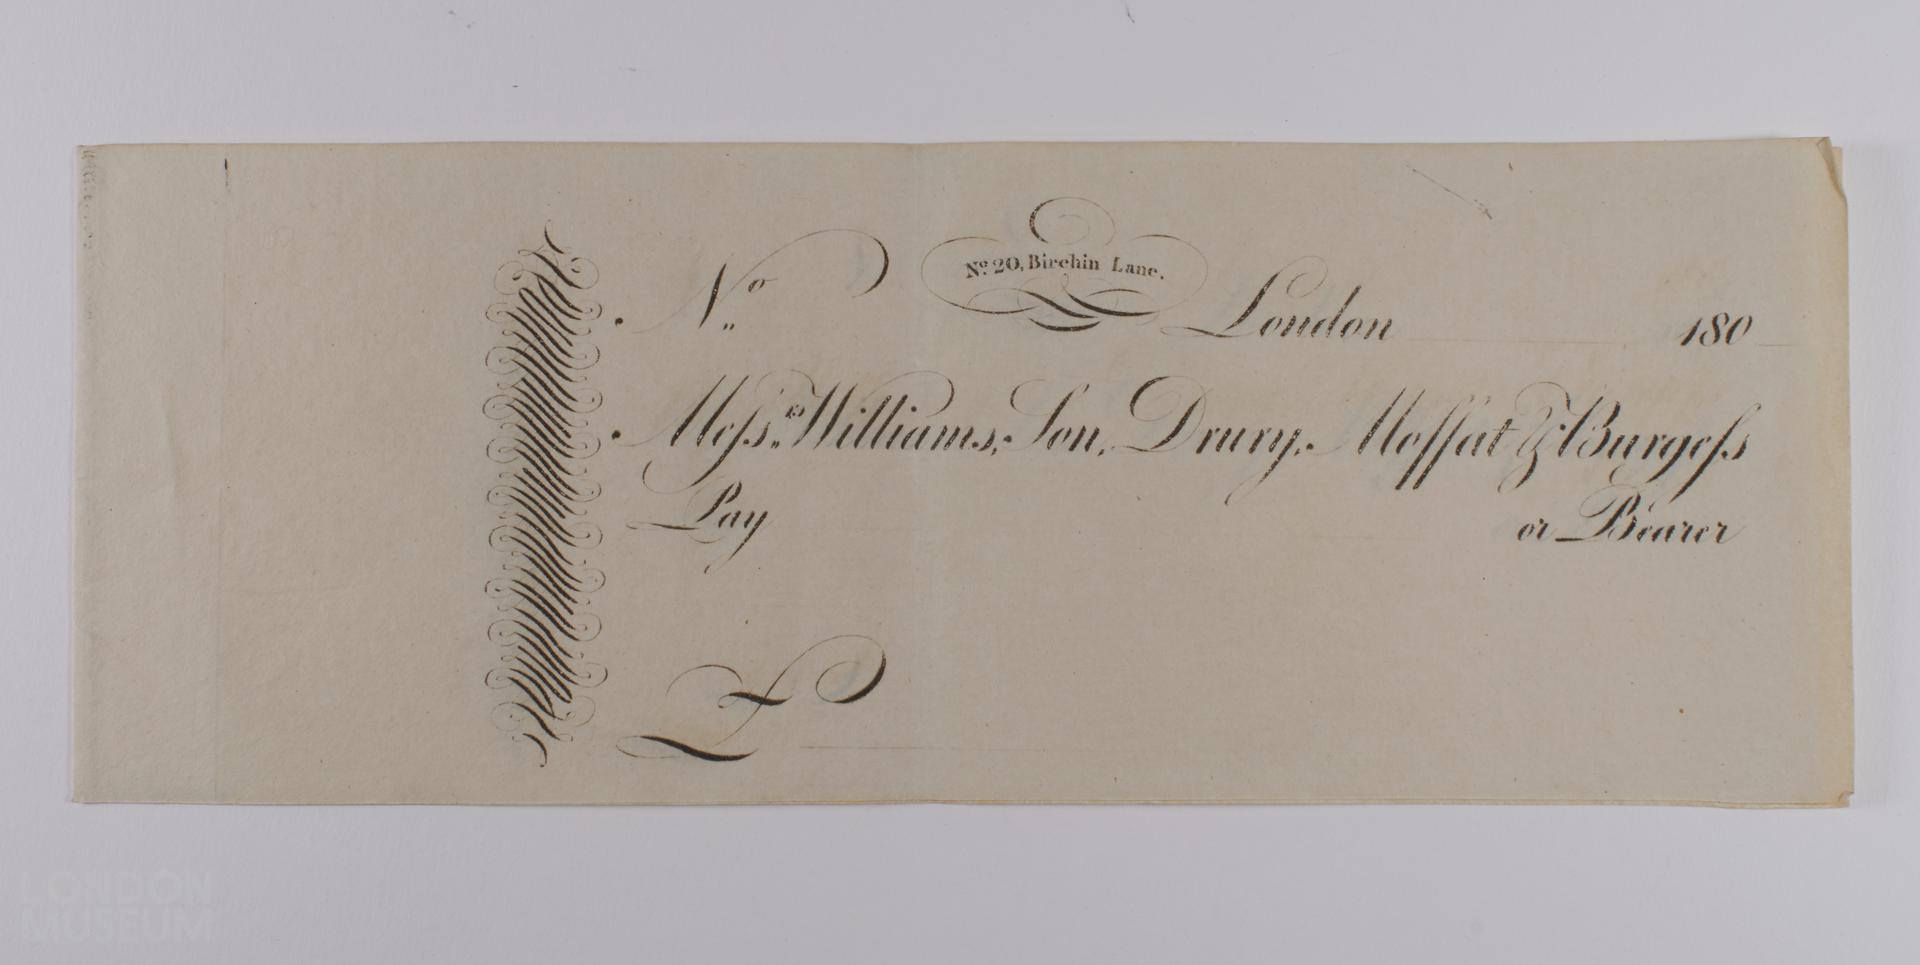 No. 20, Birchin Lane.
No London 180
Messrs. Williams, Son, Drury, Moffat & Burgess
Pay or Bearer
£
LONDON
MUSEUM